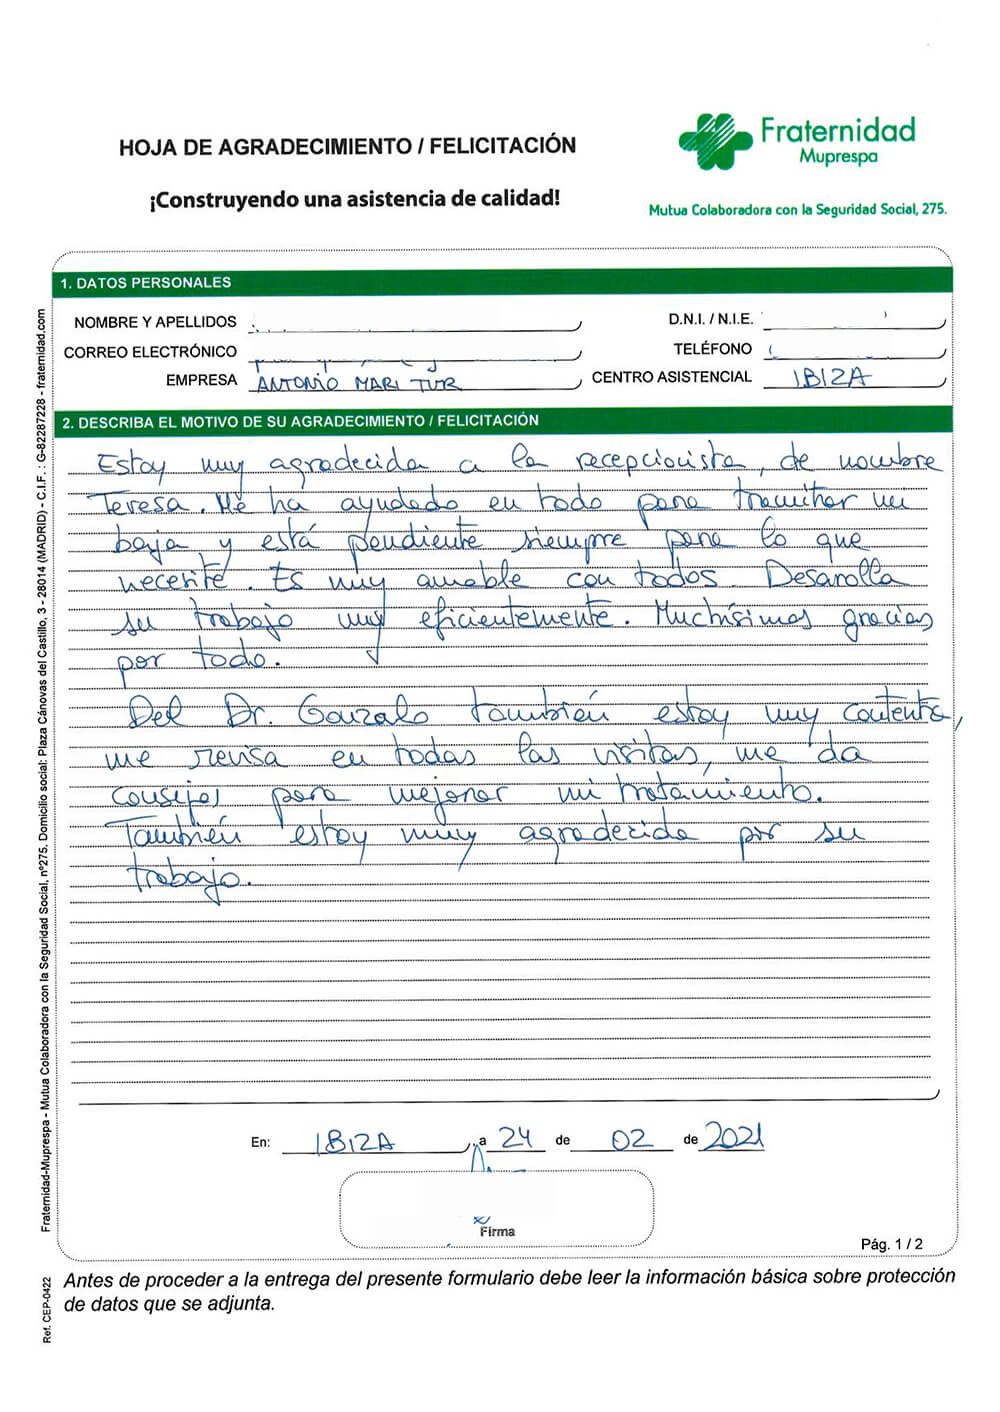 HOJA DE AGRADECIMIENTO / FELICITACIÓN
¡Construyendo una asistencia de calidad!
Fraternidad
Muprespa
Mutua Colaboradora con la Seguridad Social, 275.
1. DATOS PERSONALES
NOMBRE Y APELLIDOS
D.N.I. / N.I.E.
CORREO ELECTRÓNICO
TELÉFONO
EMPRESA ANTONIO MARI TUR
CENTRO ASISTENCIAL IBIZA
2. DESCRIBA EL MOTIVO DE SU AGRADECIMIENTO / FELICITACIÓN
Estoy muy agradecida a la recepcionista, de nombre
Teresa. Me ha ayudado en todo para tramitar mi
baja, y está pendiente siempre para lo que
necesité. Es muy amable con todos. Desarolla
su trabajo muy eficientemente. Muchísimas gracias
por todo.
Del Dr. Gonzalo también estoy muy contenta,
me revisa en todas las visitas, me da
consejos para mejorar mi tratamiento.
También estoy muy agradecida por su
trabajo.
En: IBIZA, a 24 de 02 de 2021
Firma
Pág. 1 / 2
Antes de proceder a la entrega del presente formulario debe leer la información básica sobre protección
de datos que se adjunta.
Fraternidad-Muprespa - Mutua Colaboradora con la Seguridad Social, nº275. Domicilio social: Plaza Cánovas del Castillo, 3 - 28014 (MADRID) - C.I.F. : G-82287228 - fraternidad.com
Ref. CEP-0422